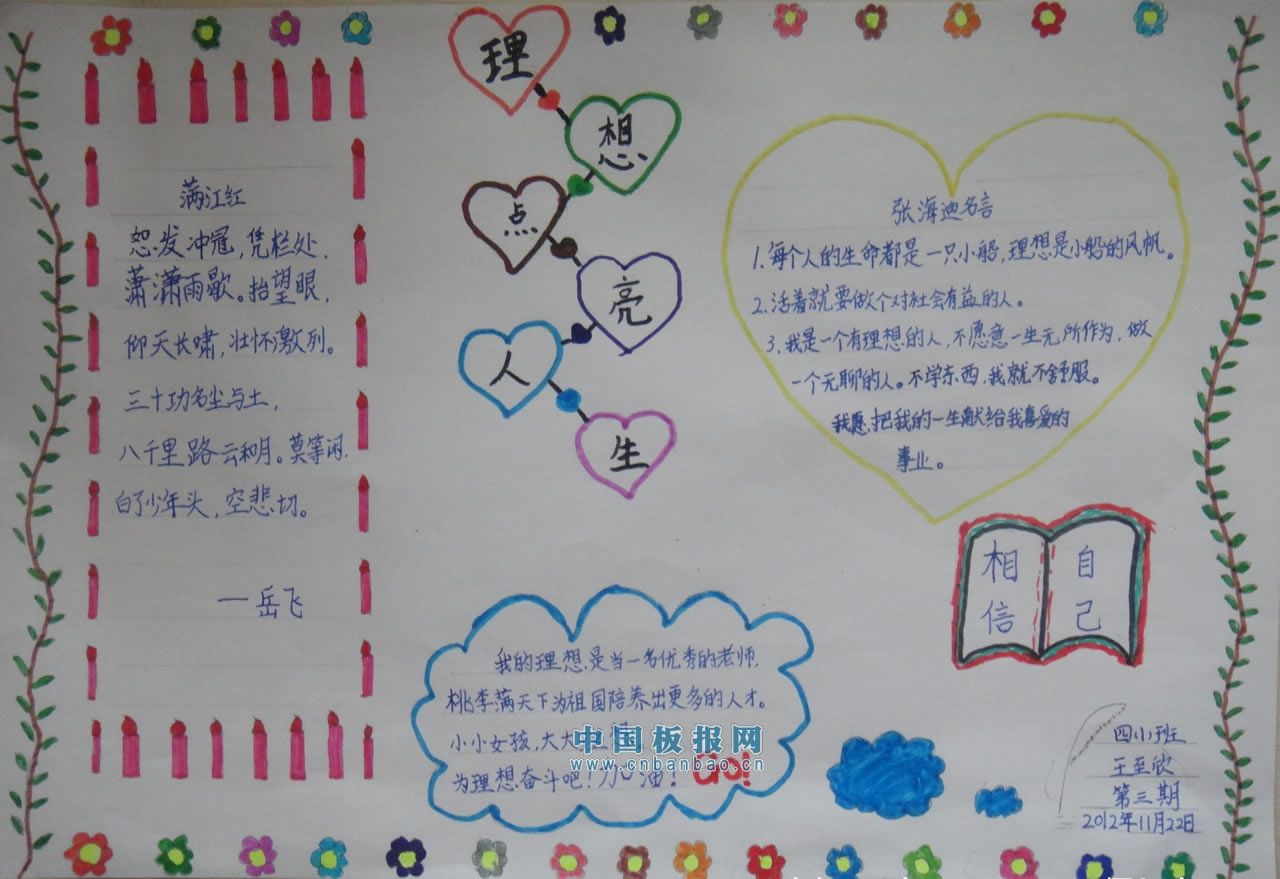 理
想
点
亮
人
生
满江红
恕发冲冠,凭栏处,
潇潇雨歇。抬望眼,
仰天长啸,壮怀激列。
三十功名尘与土,
八千里路云和月。莫等闲,
白了少年头,空悲切。
—岳飞
张海迪名言
1.每个人的生命都是一只小船,理想是小船的风帆。
2.活着就要做个对社会有益的人。
3.我是一个有理想的人,不愿意一生无所作为,做
一个无聊的人。不学东西,我就不舒服。
我愿把我的一生献给我喜爱的
事业。
相信
自己
我的理想是当一名优秀的老师,
桃李满天下为祖国培养出更多的人才。
小小女孩,大大
为理想奋斗吧!加油! GO!
中国板报网
www.cnbanbao.cn
四小班
王至欣
第三期
2012年11月22日